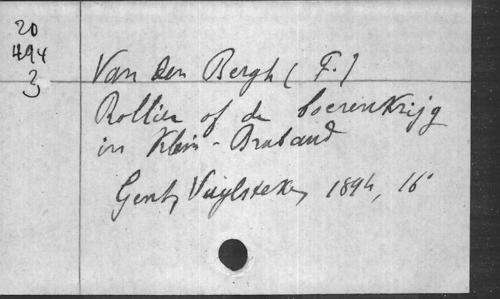 20
494
3
Van den Bergh (F.)
Rollier of de boerenkrijg
in Klein-Braband
Gent, Vuylsteke, 1894, 16°